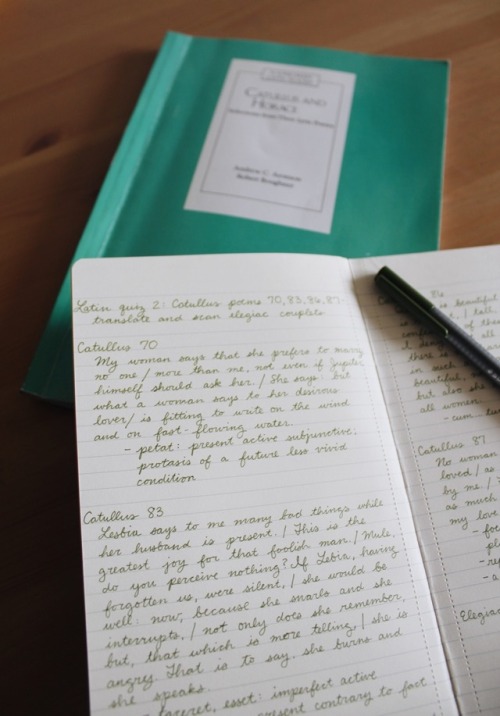 CATULLUS AND
HORACE
Selections from Their Lyric Poetry
Andrew C. Aronson
Robert Boughner
Latin quiz 2: Catullus poems 70, 83, 86, 87-
translate and scan elegiac couplets
Catullus 70
My woman says that she prefers to marry
no one / more than me, not even if Jupiter
himself should ask her. / She says: but
what a woman says to her desirous
lover / is fitting to write on the wind
and on fast-flowing water.
- petat: present active subjunctive;
protasis of a future less vivid
condition
Catullus 83
Lesbia says to me many bad things while
her husband is present. / This is the
greatest joy for that foolish man. / Mule,
do you perceive nothing? If Lebia, having
forgotten us, were silent, / she would be
well: now, because she snarls and she
interrupts, / not only does she remember,
but, that which is more telling, / she is
angry. That is to say, she burns and
she speaks.
taceret, esset: imperfect active
present contrary to fact
is beautiful
tell;
I
of those
there is
in such
beautiful,
but also she
all women.
- cum
Catullus 87
No woman
loved / as
by me. /
as much
my love
Elegiac